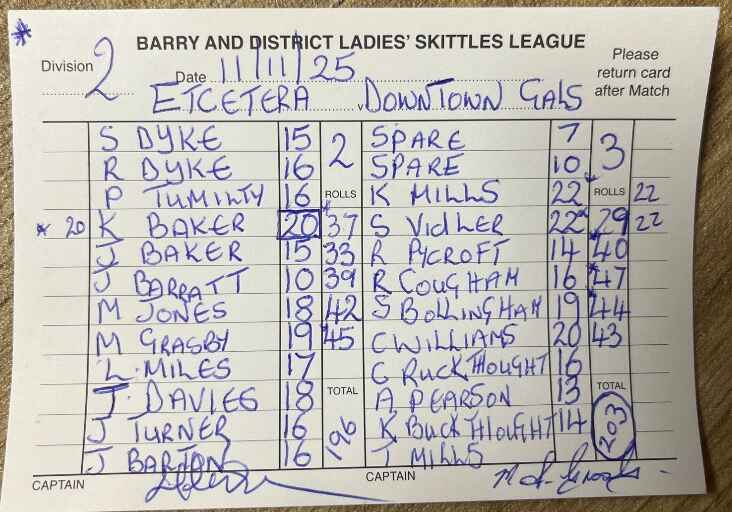 * BARRY AND DISTRICT LADIES' SKITTLES LEAGUE
Division 2 Date 11/11/25 Please return card after Match
ETCETERA v DOWNTOWN GALS
S DYKE 15 2 SPARE 7 3
R DYKE 16 SPARE 10
P TUMILTY 16 ROLLS K MILLS 22 ROLLS 22
* 20 K BAKER 20 37 S VIDLER 22 29 22
J BAKER 15 33 R PYCROFT 14 40
J BARRATT 10 39 R COUGHAM 16 47
M JONES 18 42 S BOLLINGHAM 19 44
M GRASBY 19 45 C WILLIAMS 20 43
L. MILES 17 G RUCKTHOUGHT 16
J. DAVIES 18 TOTAL A PEARSON 13 TOTAL
J TURNER 16 196 K BUCKTHOUGHT 14 203
J BARTON 16 J MILLS
CAPTAIN CAPTAIN